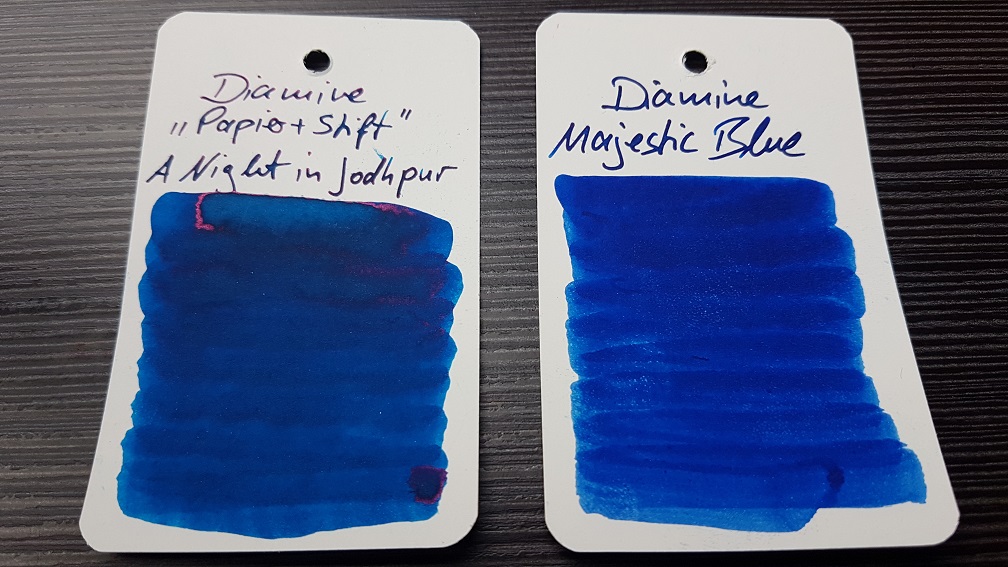 Diamine
„Papier + Stift"
A Night in Jodhpur
Diamine
Majestic Blue